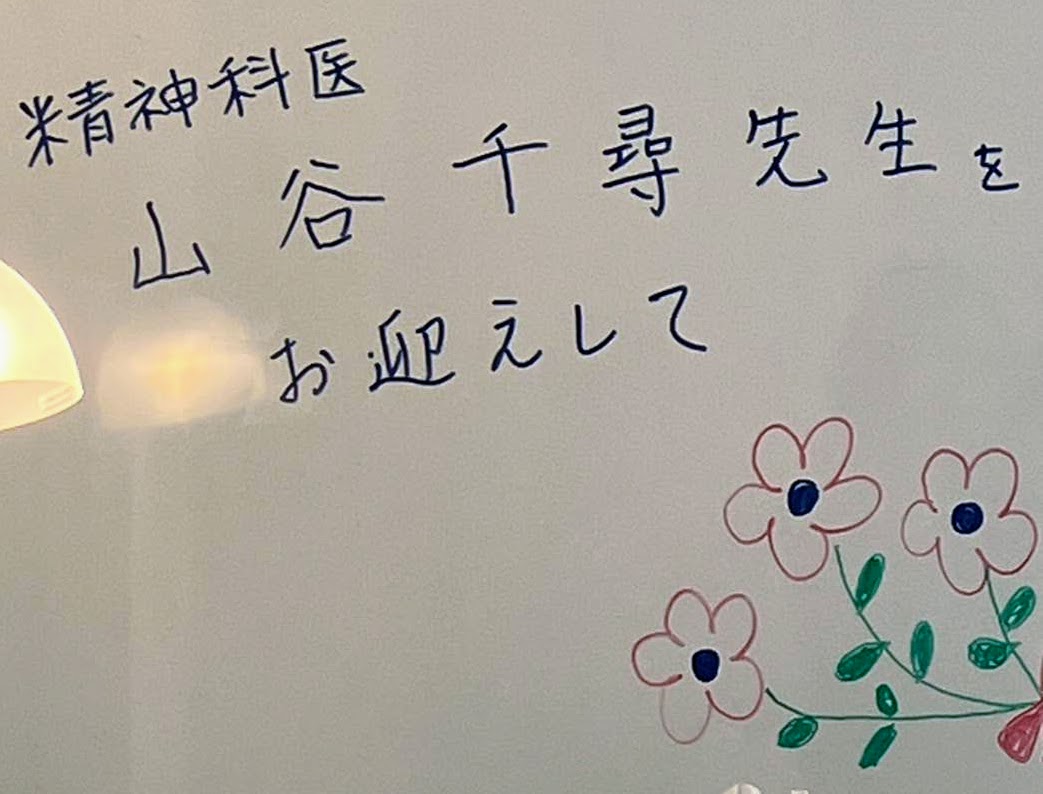 精神科医
山谷千尋先生を
お迎えして